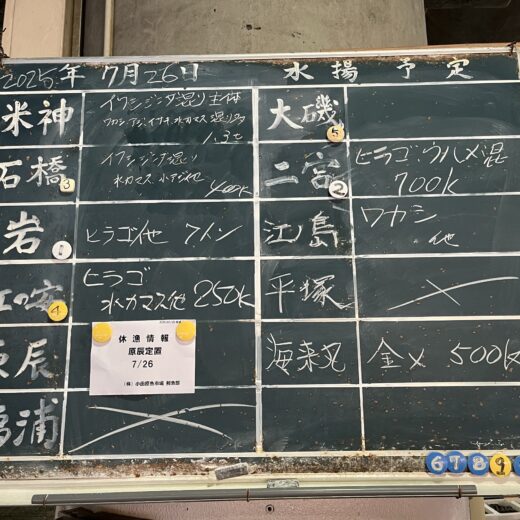 2025年 7月26日 水揚予定
米神
イワシジンタ混り主体
ワカシ アジ イナダ 水カマス 混り
1.3t
石橋
3
イワシジンタ混り
水カマス 小アジ他
400k
岩
1
ヒラゴ他 7トン
江の安
4
ヒラゴ
水カマス他 250k
原辰
休漁情報
原辰定置
7/26
(株)小田原魚市場 鮮魚部
福浦
大磯
5
二宮
2
ヒラゴ.ウルメ混
700k
江島
ワカシ
他
平塚
海来丸 金メ 500k
6 7 8 9